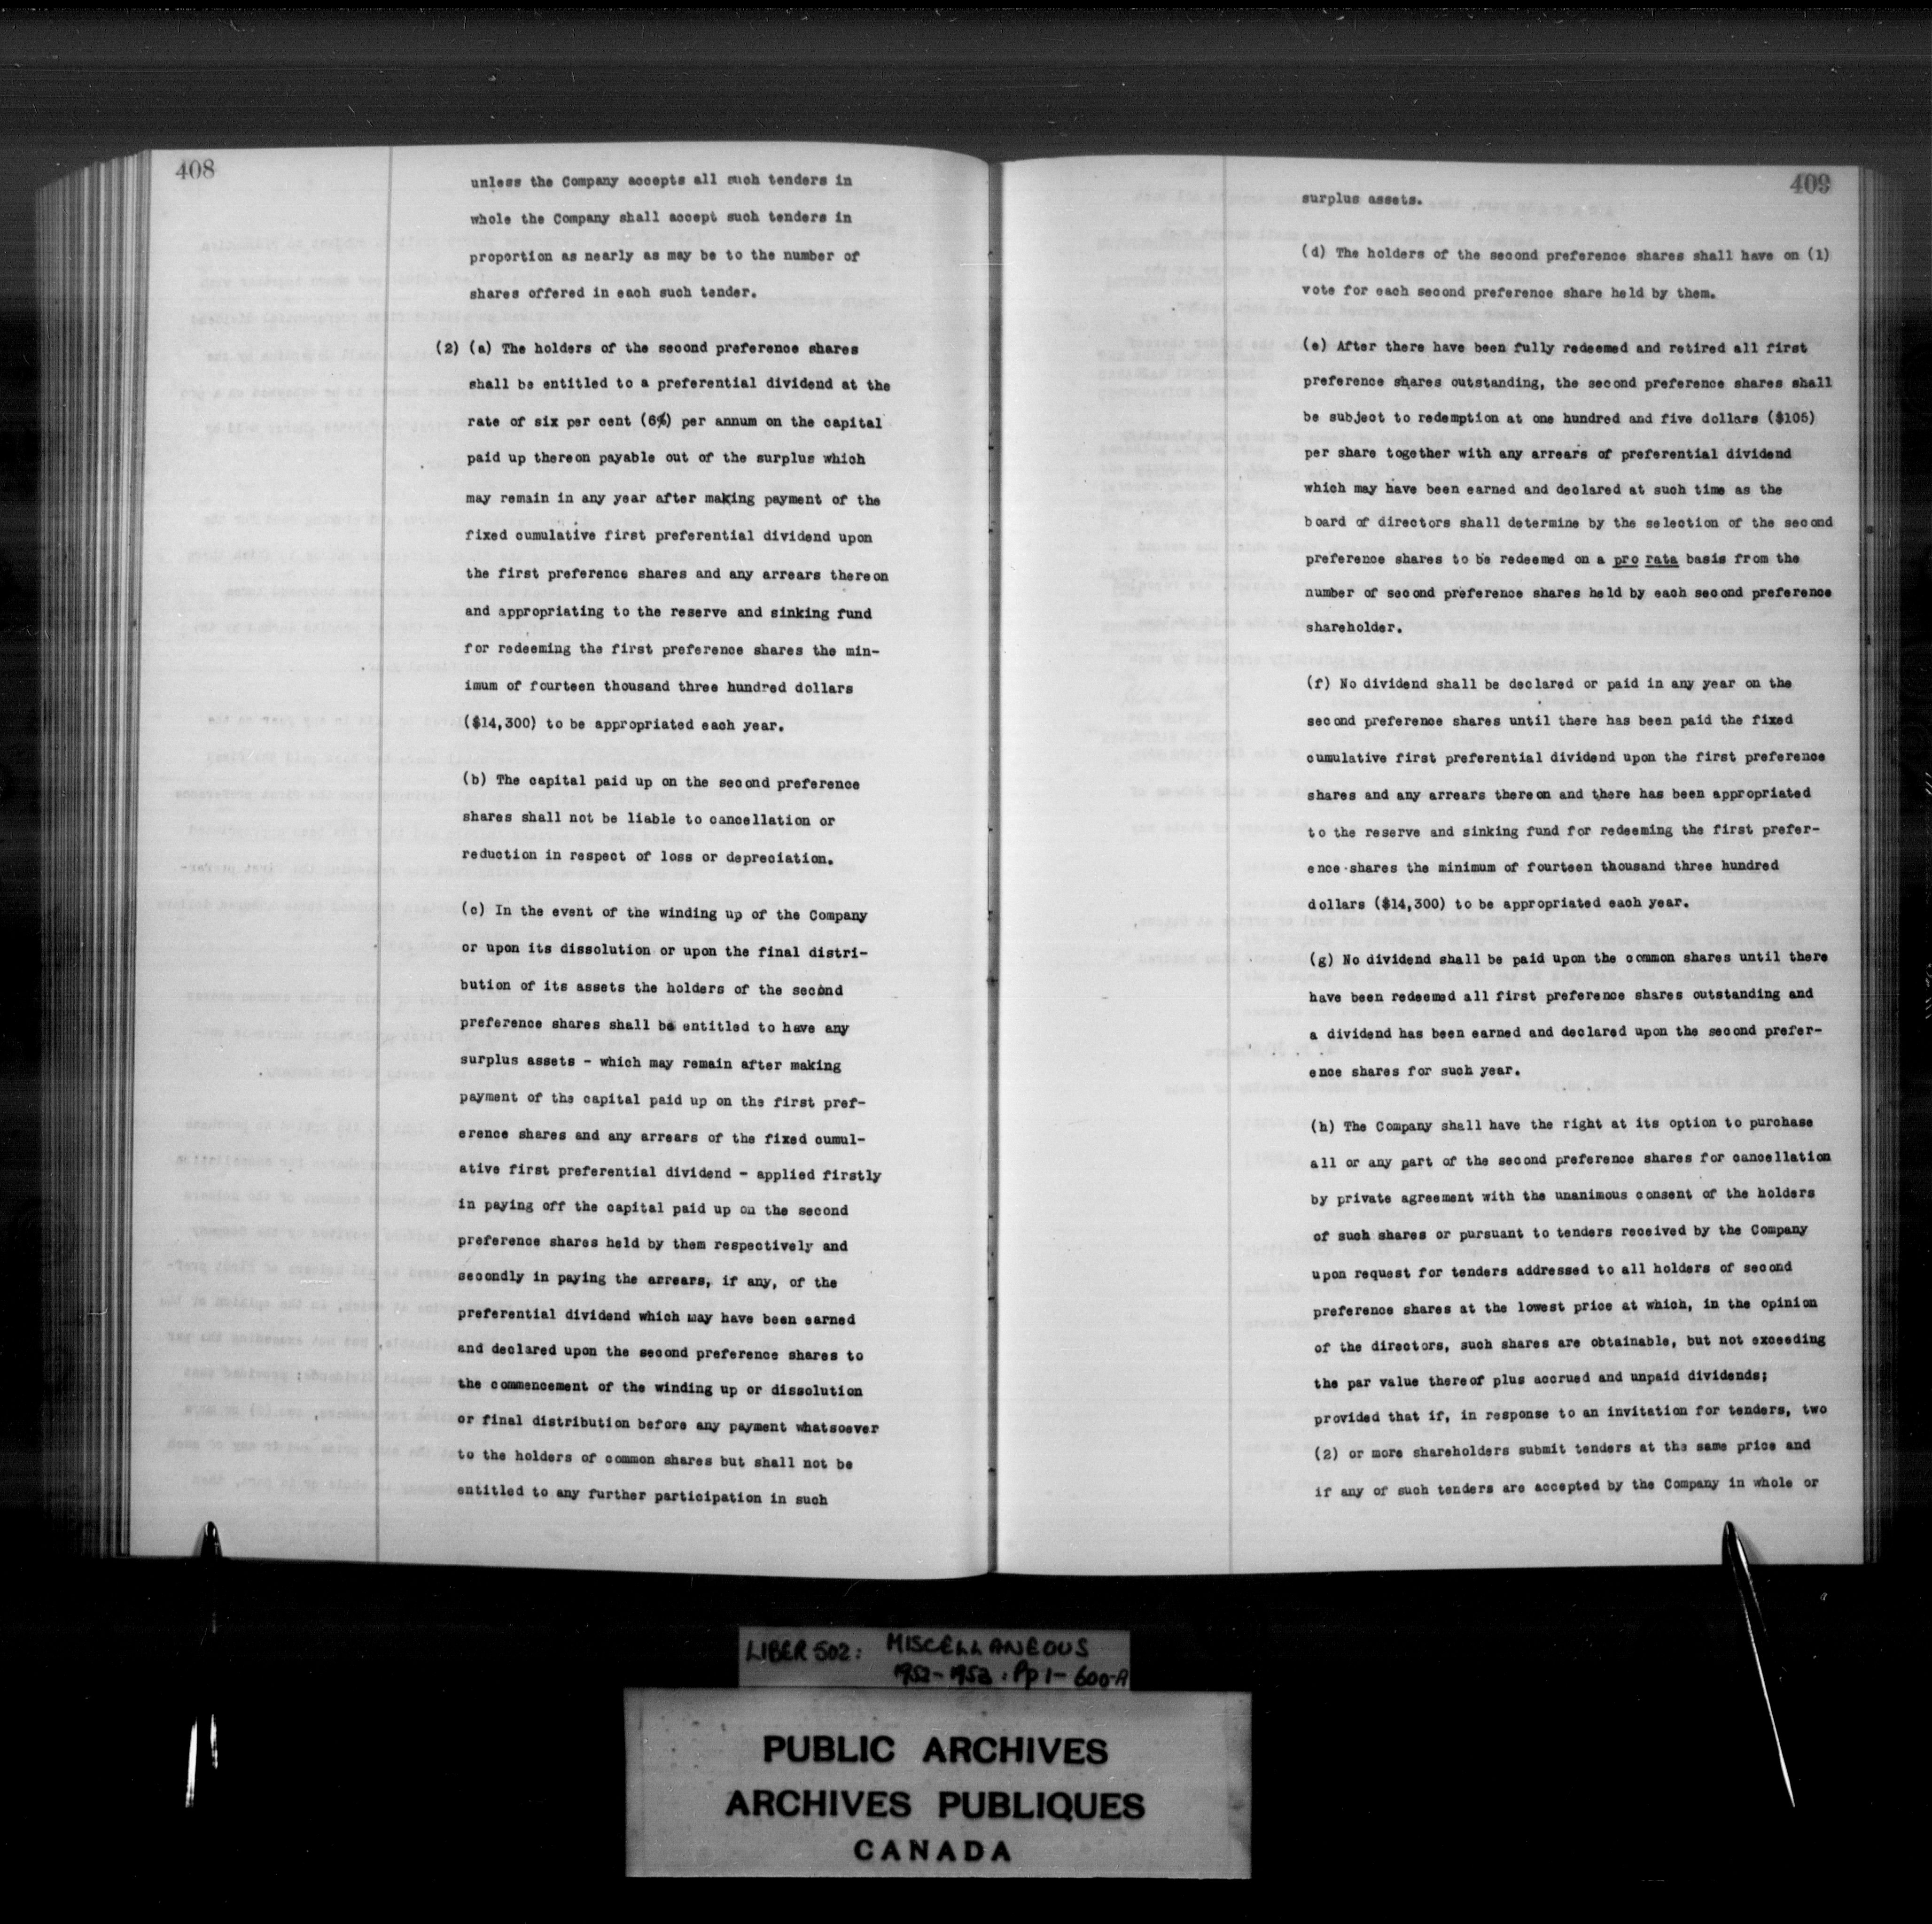 408
unless the Company accepts all such tenders in
whole the Company shall accept such tenders in
proportion as nearly as may be to the number of
shares offered in each such tender.
(2) (a) The holders of the second preference shares
shall be entitled to a preferential dividend at the
rate of six per cent (6%) per annum on the capital
paid up thereon payable out of the surplus which
may remain in any year after making payment of the
fixed cumulative first preferential dividend upon
the first preference shares and any arrears thereon
and appropriating to the reserve and sinking fund
for redeeming the first preference shares the min-
imum of fourteen thousand three hundred dollars
($14,300) to be appropriated each year.
(b) The capital paid up on the second preference
shares shall not be liable to cancellation or
reduction in respect of loss or depreciation.
(c) In the event of the winding up of the Company
or upon its dissolution or upon the final distri-
bution of its assets the holders of the second
preference shares shall be entitled to have any
surplus assets - which may remain after making
payment of the capital paid up on the first pref-
erence shares and any arrears of the fixed cumul-
ative first preferential dividend - applied firstly
in paying off the capital paid up on the second
preference shares held by them respectively and
secondly in paying the arrears, if any, of the
preferential dividend which may have been earned
and declared upon the second preference shares to
the commencement of the winding up or dissolution
or final distribution before any payment whatsoever
to the holders of common shares but shall not be
entitled to any further participation in such
409
surplus assets.
(d) The holders of the second preference shares shall have on (1)
vote for each second preference share held by them.
(e) After there have been fully redeemed and retired all first
preference shares outstanding, the second preference shares shall
be subject to redemption at one hundred and five dollars ($105)
per share together with any arrears of preferential dividend
which may have been earned and declared at such time as the
board of directors shall determine by the selection of the second
preference shares to be redeemed on a pro rata basis from the
number of second preference shares held by each second preference
shareholder.
(f) No dividend shall be declared or paid in any year on the
second preference shares until there has been paid the fixed
cumulative first preferential dividend upon the first preference
shares and any arrears thereon and there has been appropriated
to the reserve and sinking fund for redeeming the first prefer-
ence shares the minimum of fourteen thousand three hundred
dollars ($14,300) to be appropriated each year.
(g) No dividend shall be paid upon the common shares until there
have been redeemed all first preference shares outstanding and
a dividend has been earned and declared upon the second prefer-
ence shares for such year.
(h) The Company shall have the right at its option to purchase
all or any part of the second preference shares for cancellation
by private agreement with the unanimous consent of the holders
of such shares or pursuant to tenders received by the Company
upon request for tenders addressed to all holders of second
preference shares at the lowest price at which, in the opinion
of the directors, such shares are obtainable, but not exceeding
the par value thereof plus accrued and unpaid dividends;
provided that if, in response to an invitation for tenders, two
(2) or more shareholders submit tenders at the same price and
if any of such tenders are accepted by the Company in whole or
LIBER 502: MISCELLANEOUS
1952-1953: Pp 1-600-A
PUBLIC ARCHIVES
ARCHIVES PUBLIQUES
CANADA